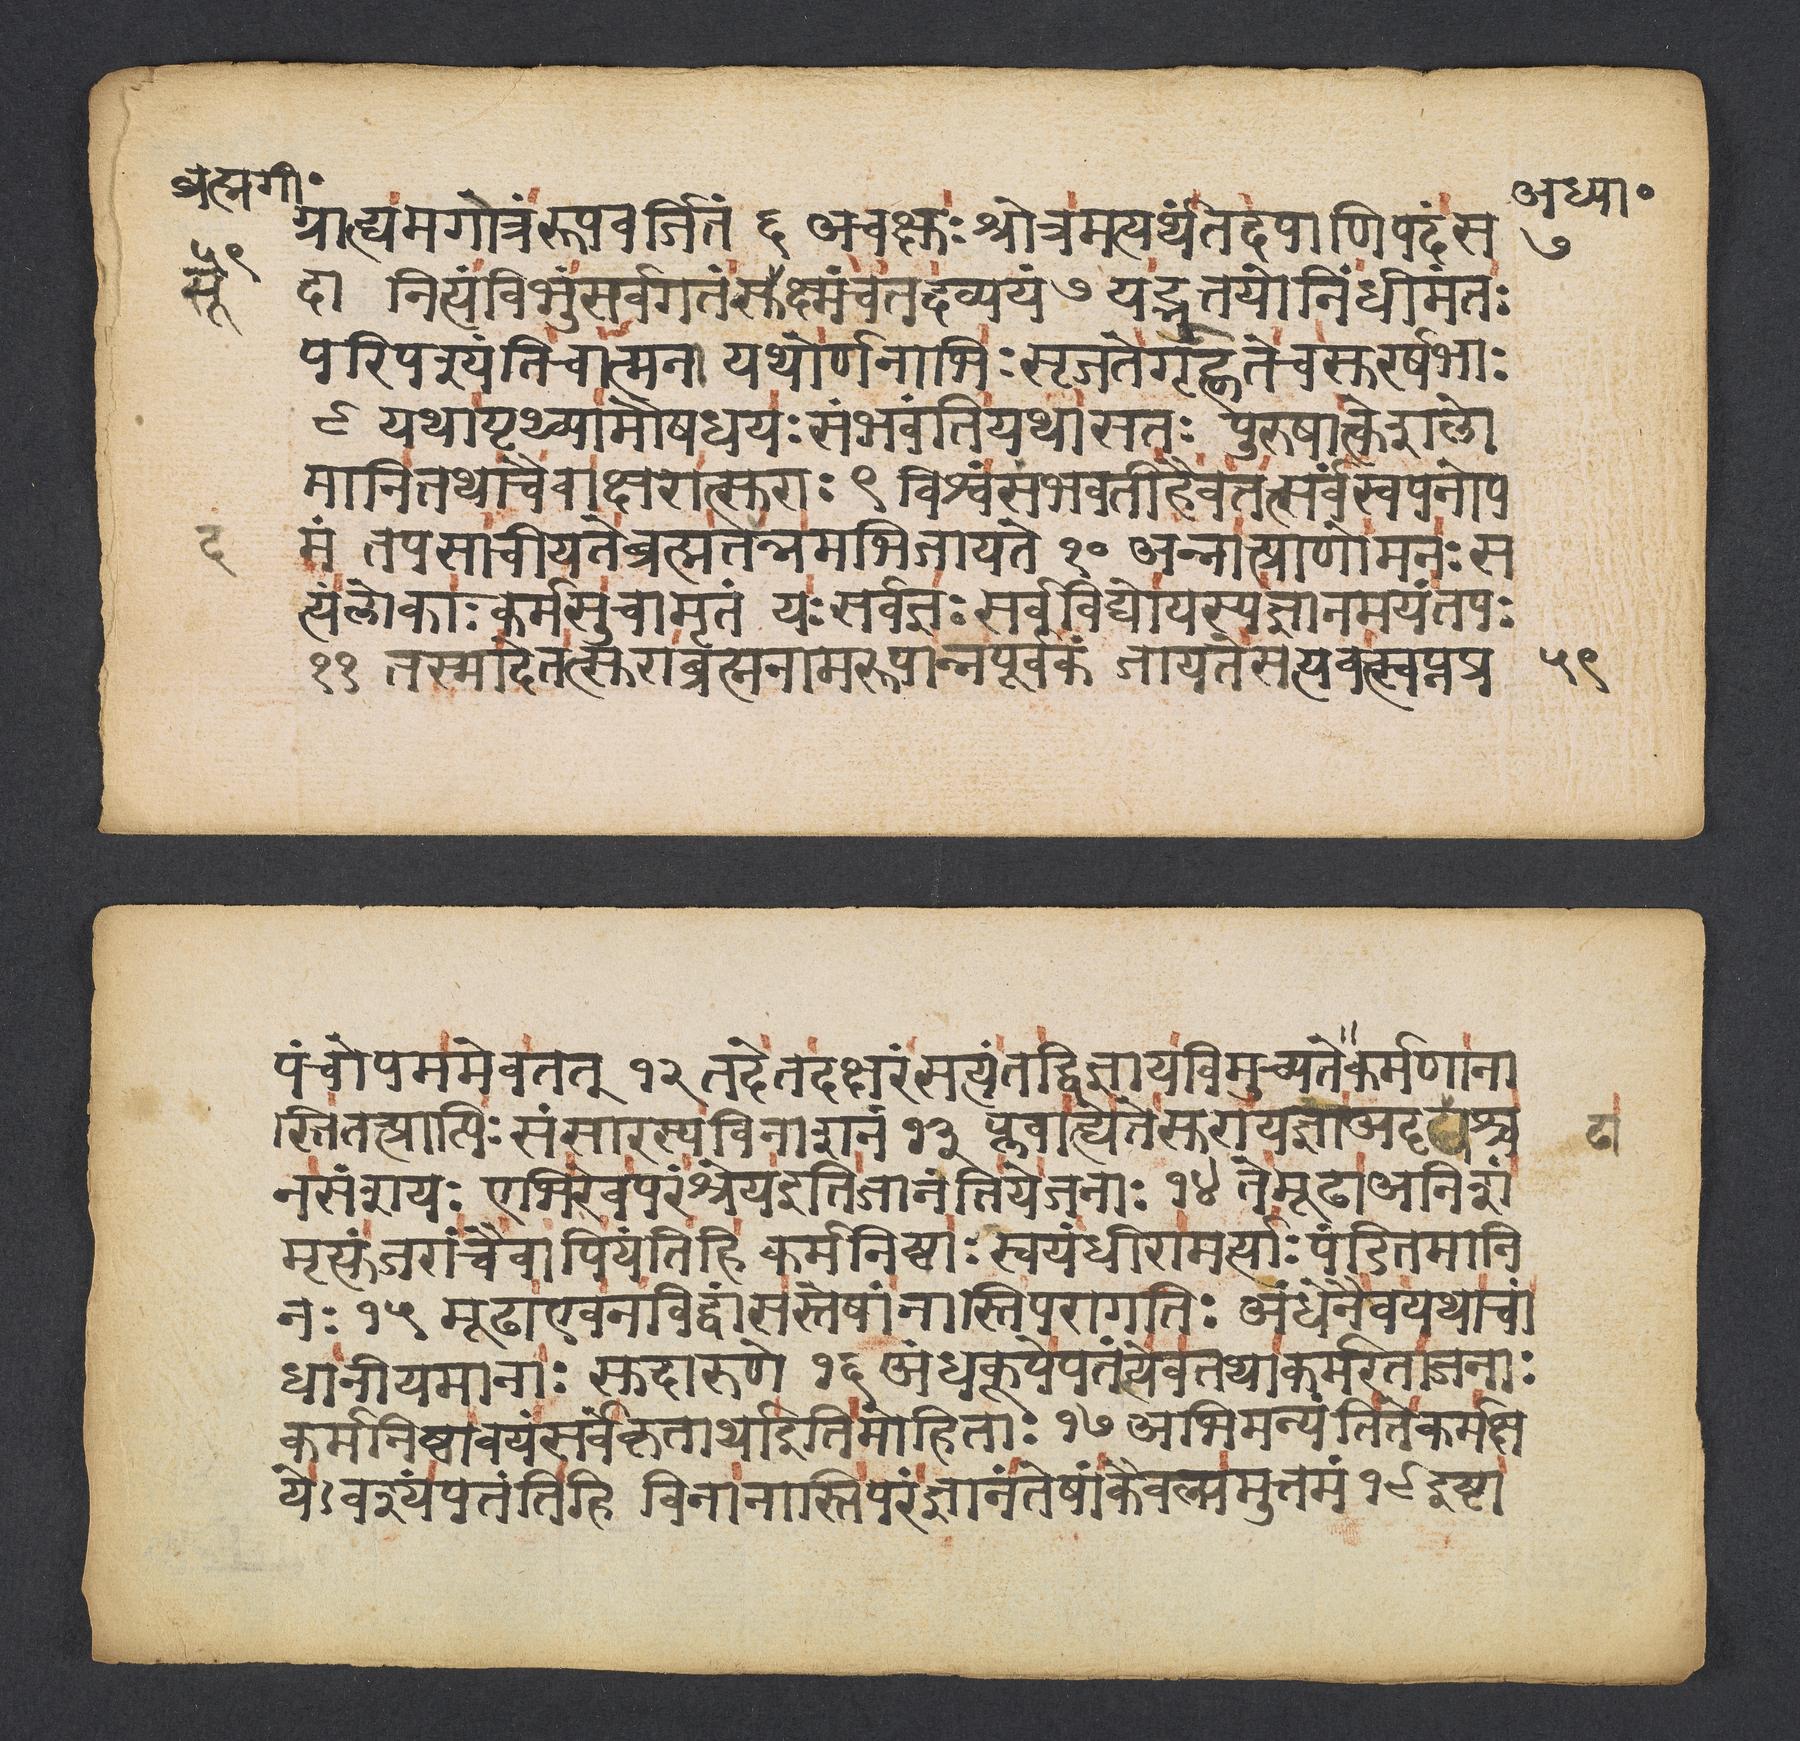 ब्रह्मगी॰
५९
सू
अध्या॰
७
ग्राह्यमगोत्रंरूपवर्जितं ६ अचक्षुःश्रोत्रमत्यर्थंतदपाणिपदंस
दा नित्यंविभुंसर्वगतंसुसूक्ष्मंचतदव्ययं ७ यद्भूतयोनिंधीमंतः
परिपश्यंतिचात्मना यथोर्णनाभिःसृजतेगृह्णतेचसुरर्षभाः
८ यथापृथिव्यामोषधयःसंभवंतियथासतः पुरुषात्केशलो
मानितथाचैवाक्षरात्सुराः ९ विश्वंसंभवतीहैवतत्सर्वंस्वपनोप
द
मं तपसाचीयतेब्रह्मतन्नमभिजायते १० अन्नात्प्राणोमनःस
त्यंलोकाःकर्मसुचामृतं यःसर्वज्ञःसर्वविद्योयस्यज्ञानमयंतपः
११ तस्मादेतत्सुराब्रह्मनामरूपान्नपूर्वकं जायतेसत्यवत्स्वप्नप्र
५९
पंचोपममेवतत् १२ तदेतदक्षरंसत्यंतद्विज्ञायविमुच्यते कर्मणाना
स्तितत्प्राप्तिःसंसारस्यविनाशनं १३ प्लवाह्येतेसुरायज्ञाअदृढाश्च
ढा
नसंशयः एभिरेवपरंश्रेयइतिजानंतियेजनाः १४ तेमूढाअनिशं
मृत्युंजरांचैवापियंतिहि कर्मनिष्ठाः स्वयंधीरामर्त्याःपंडितमानि
नः १५ मूढाएवनविद्वांसस्तेषांनास्तिपरागतिः अंधेनैवयथाचां
धानीयमानाः सुदारुणे १६ अंधकूपेपतंत्येवतथाकर्मरताजनाः
कर्मनिष्ठावयंसर्वेकृतार्थाइतिमोहिताः १७ अभिमन्यंतितेकर्मक्ष
येऽवश्यंपतंतिहि विनानास्तिपरंज्ञानंतेषांकैवल्यमुत्तमं १८ इष्टा